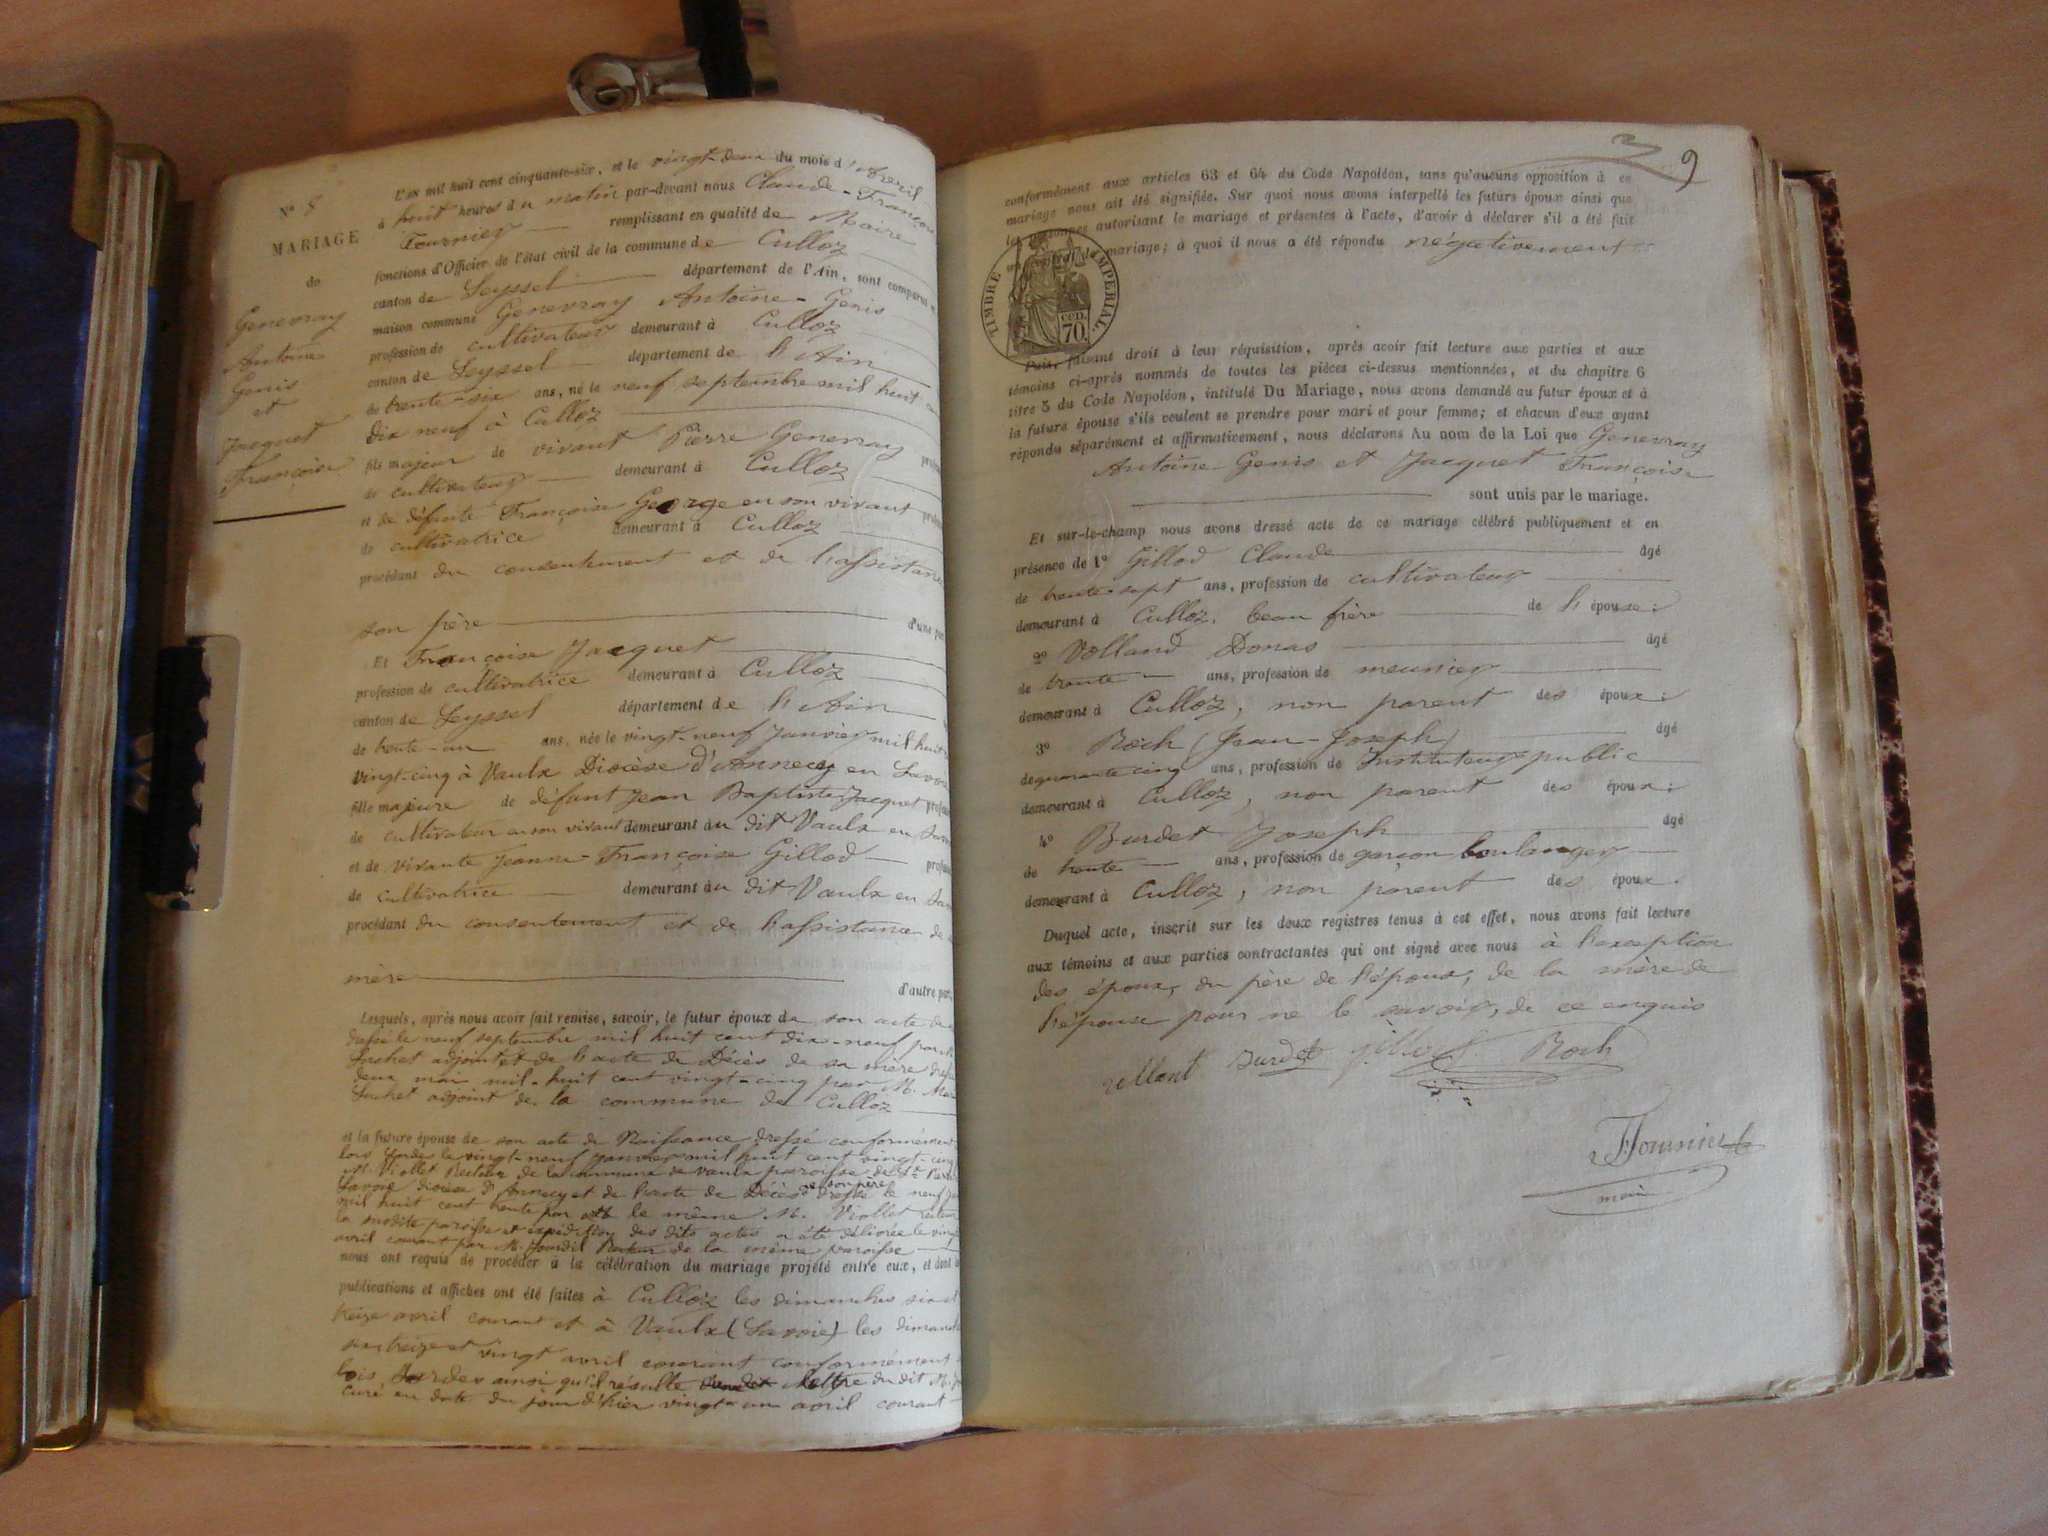 N° 8
MARIAGE
de
Genevray
Antoine
Genis
et
Jacquet
Françoise
L'an mil huit cent cinquante-six, et le vingt-deux du mois d'avril
à huit heures du matin par-devant nous Claude-François
Fournier remplissant en qualité de Maire
fonctions d'Officier de l'état civil de la commune de Culloz
canton de Seyssel département de l'Ain, sont comparus
maison commune Genevray Antoine-Genis
profession de cultivateur demeurant à Culloz
canton de Seyssel département de l'Ain
de trente-six ans, né le neuf septembre mil huit
dix neuf à Culloz
fils majeur de vivant Pierre Genevray
de cultivateur demeurant à Culloz
et de défunte Françoise George en son vivant
de cultivatrice demeurant à Culloz
procédant du consentement et de l'assistance
son père d'une part
Et Françoise Jacquet
profession de cultivatrice demeurant à Culloz
canton de Seyssel département de l'Ain
de trente-un ans, née le vingt-neuf Janvier mil huit
vingt-cinq à Vaulx Diocèse d'Annecy en Savoie
fille majeure de défunt Jean Baptiste Jacquet
de cultivateur en son vivant demeurant au dit Vaulx en
et de vivante Jeanne-Françoise Gillod
de cultivatrice demeurant au dit Vaulx en
procédant du consentement et de l'assistance de
mère d'autre part
Lesquels, après nous avoir fait remise, savoir, le futur époux de son acte de
dressé le neuf septembre mil huit cent dix-neuf par
adjoint et de l'acte de Décès de sa mère
deux mai mil-huit cent vingt-cinq par M.
adjoint de la commune de Culloz
et la future épouse de son acte de Naissance dressé conformément
lois Sardes le vingt-neuf janvier mil huit cent vingt-cinq
M. Viollet Recteur de la commune de Vaulx paroisse de St
Savoie diocèse d'Annecy et de l'acte de Décès de son père dressé le neuf
mil huit cent trente par le même M. Viollet recteur
la susdite paroisse et expédition des dits actes a été délivrée le
avril courant par M. Jourdil de la même paroisse
nous ont requis de procéder à la célébration du mariage projeté entre eux, et dont
publications et affiches ont été faites à Culloz les dimanches six et
treize avril courant et à Vaulx (Savoie) les dimanches
six treize et vingt avril courant conformément
lois Sardes ainsi qu'il résulte lettre du dit M.
curé en date du jour d'hier vingt-un avril courant
9
conformément aux articles 63 et 64 du Code Napoléon, sans qu'aucune opposition à ce
mariage nous ait été signifiée. Sur quoi nous avons interpellé les futurs époux ainsi que
les personnes autorisant le mariage et présentes à l'acte, d'avoir à déclarer s'il a été fait
un contrat de mariage; à quoi il nous a été répondu négativement
TIMBRE IMPERIAL
CEN.
70.
Puis, faisant droit à leur réquisition, après avoir fait lecture aux parties et aux
témoins ci-après nommés de toutes les pièces ci-dessus mentionnées, et du chapitre 6
titre 5 du Code Napoléon, intitulé Du Mariage, nous avons demandé au futur époux et à
la future épouse s'ils veulent se prendre pour mari et pour femme; et chacun d'eux ayant
répondu séparément et affirmativement, nous déclarons Au nom de la Loi que Genevray
Antoine-Genis et Jacquet Françoise
sont unis par le mariage.
Et sur-le-champ nous avons dressé acte de ce mariage célébré publiquement et en
présence de 1° Gillod Claude âgé
de trente-sept ans, profession de cultivateur
demeurant à Culloz, beau frère de l'épouse;
2° Volland Donas âgé
de trente ans, profession de meunier
demeurant à Culloz, non parent des époux;
3° Roch (Jean-Joseph) âgé
de quarante cinq ans, profession de Instituteur public
demeurant à Culloz, non parent des époux;
4° Burdet Joseph âgé
de trente ans, profession de garçon boulanger
demeurant à Culloz, non parent des époux.
Duquel acte, inscrit sur les deux registres tenus à cet effet, nous avons fait lecture
aux témoins et aux parties contractantes qui ont signé avec nous à l'exception
des époux, du père de l'époux, de la mère de
l'épouse pour ne le savoir, de ce enquis
Burdet Gillod Roch
Fournier
maire